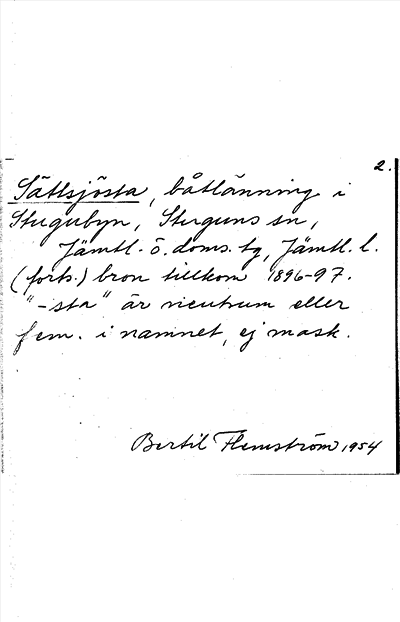 2.
Sättsjösta, båtlänning i
Stugubyn, Stuguns sn,
Jämtl. ö. doms. tg, Jämtl. l.
(forts.) bron tillkom 1896-97.
"-sta" är neutrum eller
fem. i namnet, ej mask.
Bertil Flemström 1954